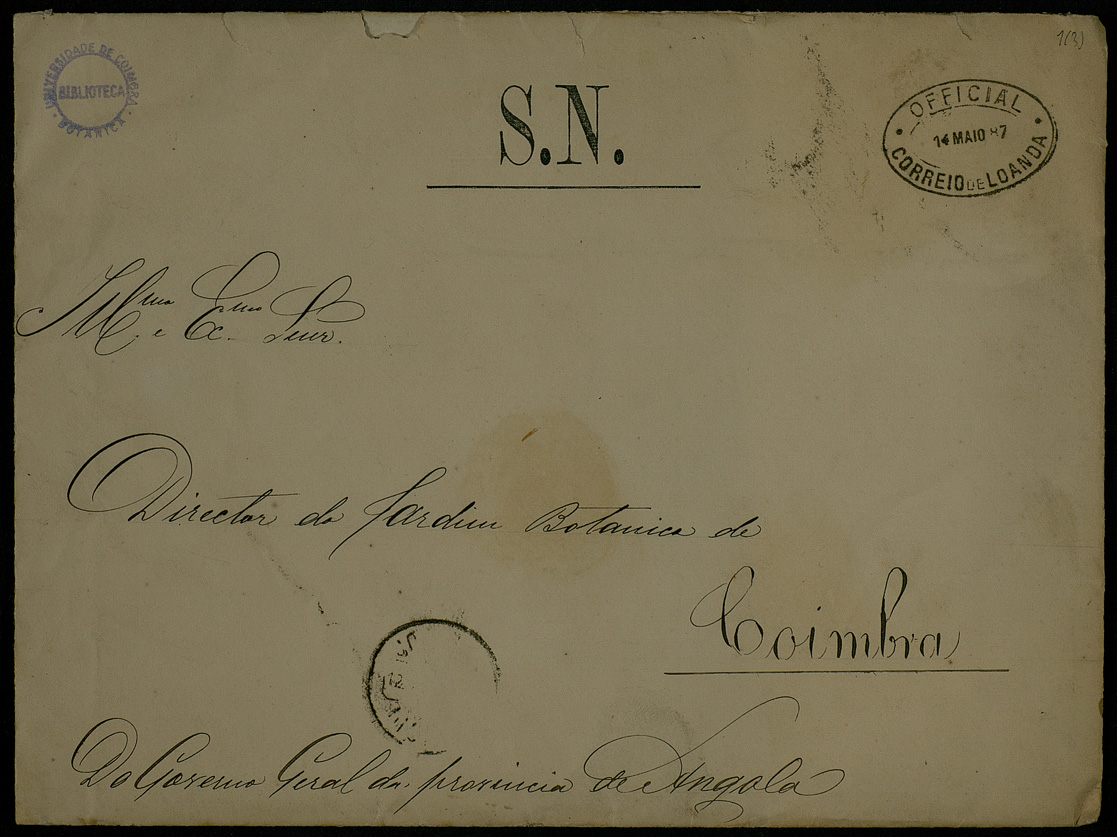 1(3)
UNIVERSIDADE DE COIMBRA
BIBLIOTECA
BOTANICA
S.N.
OFFICIAL
14 MAIO 87
CORREIO DE LOANDA
Illmo e Exmo Senr.
Director do Jardim Botanico de
Coimbra
Do Governo Geral da provincia de Angola